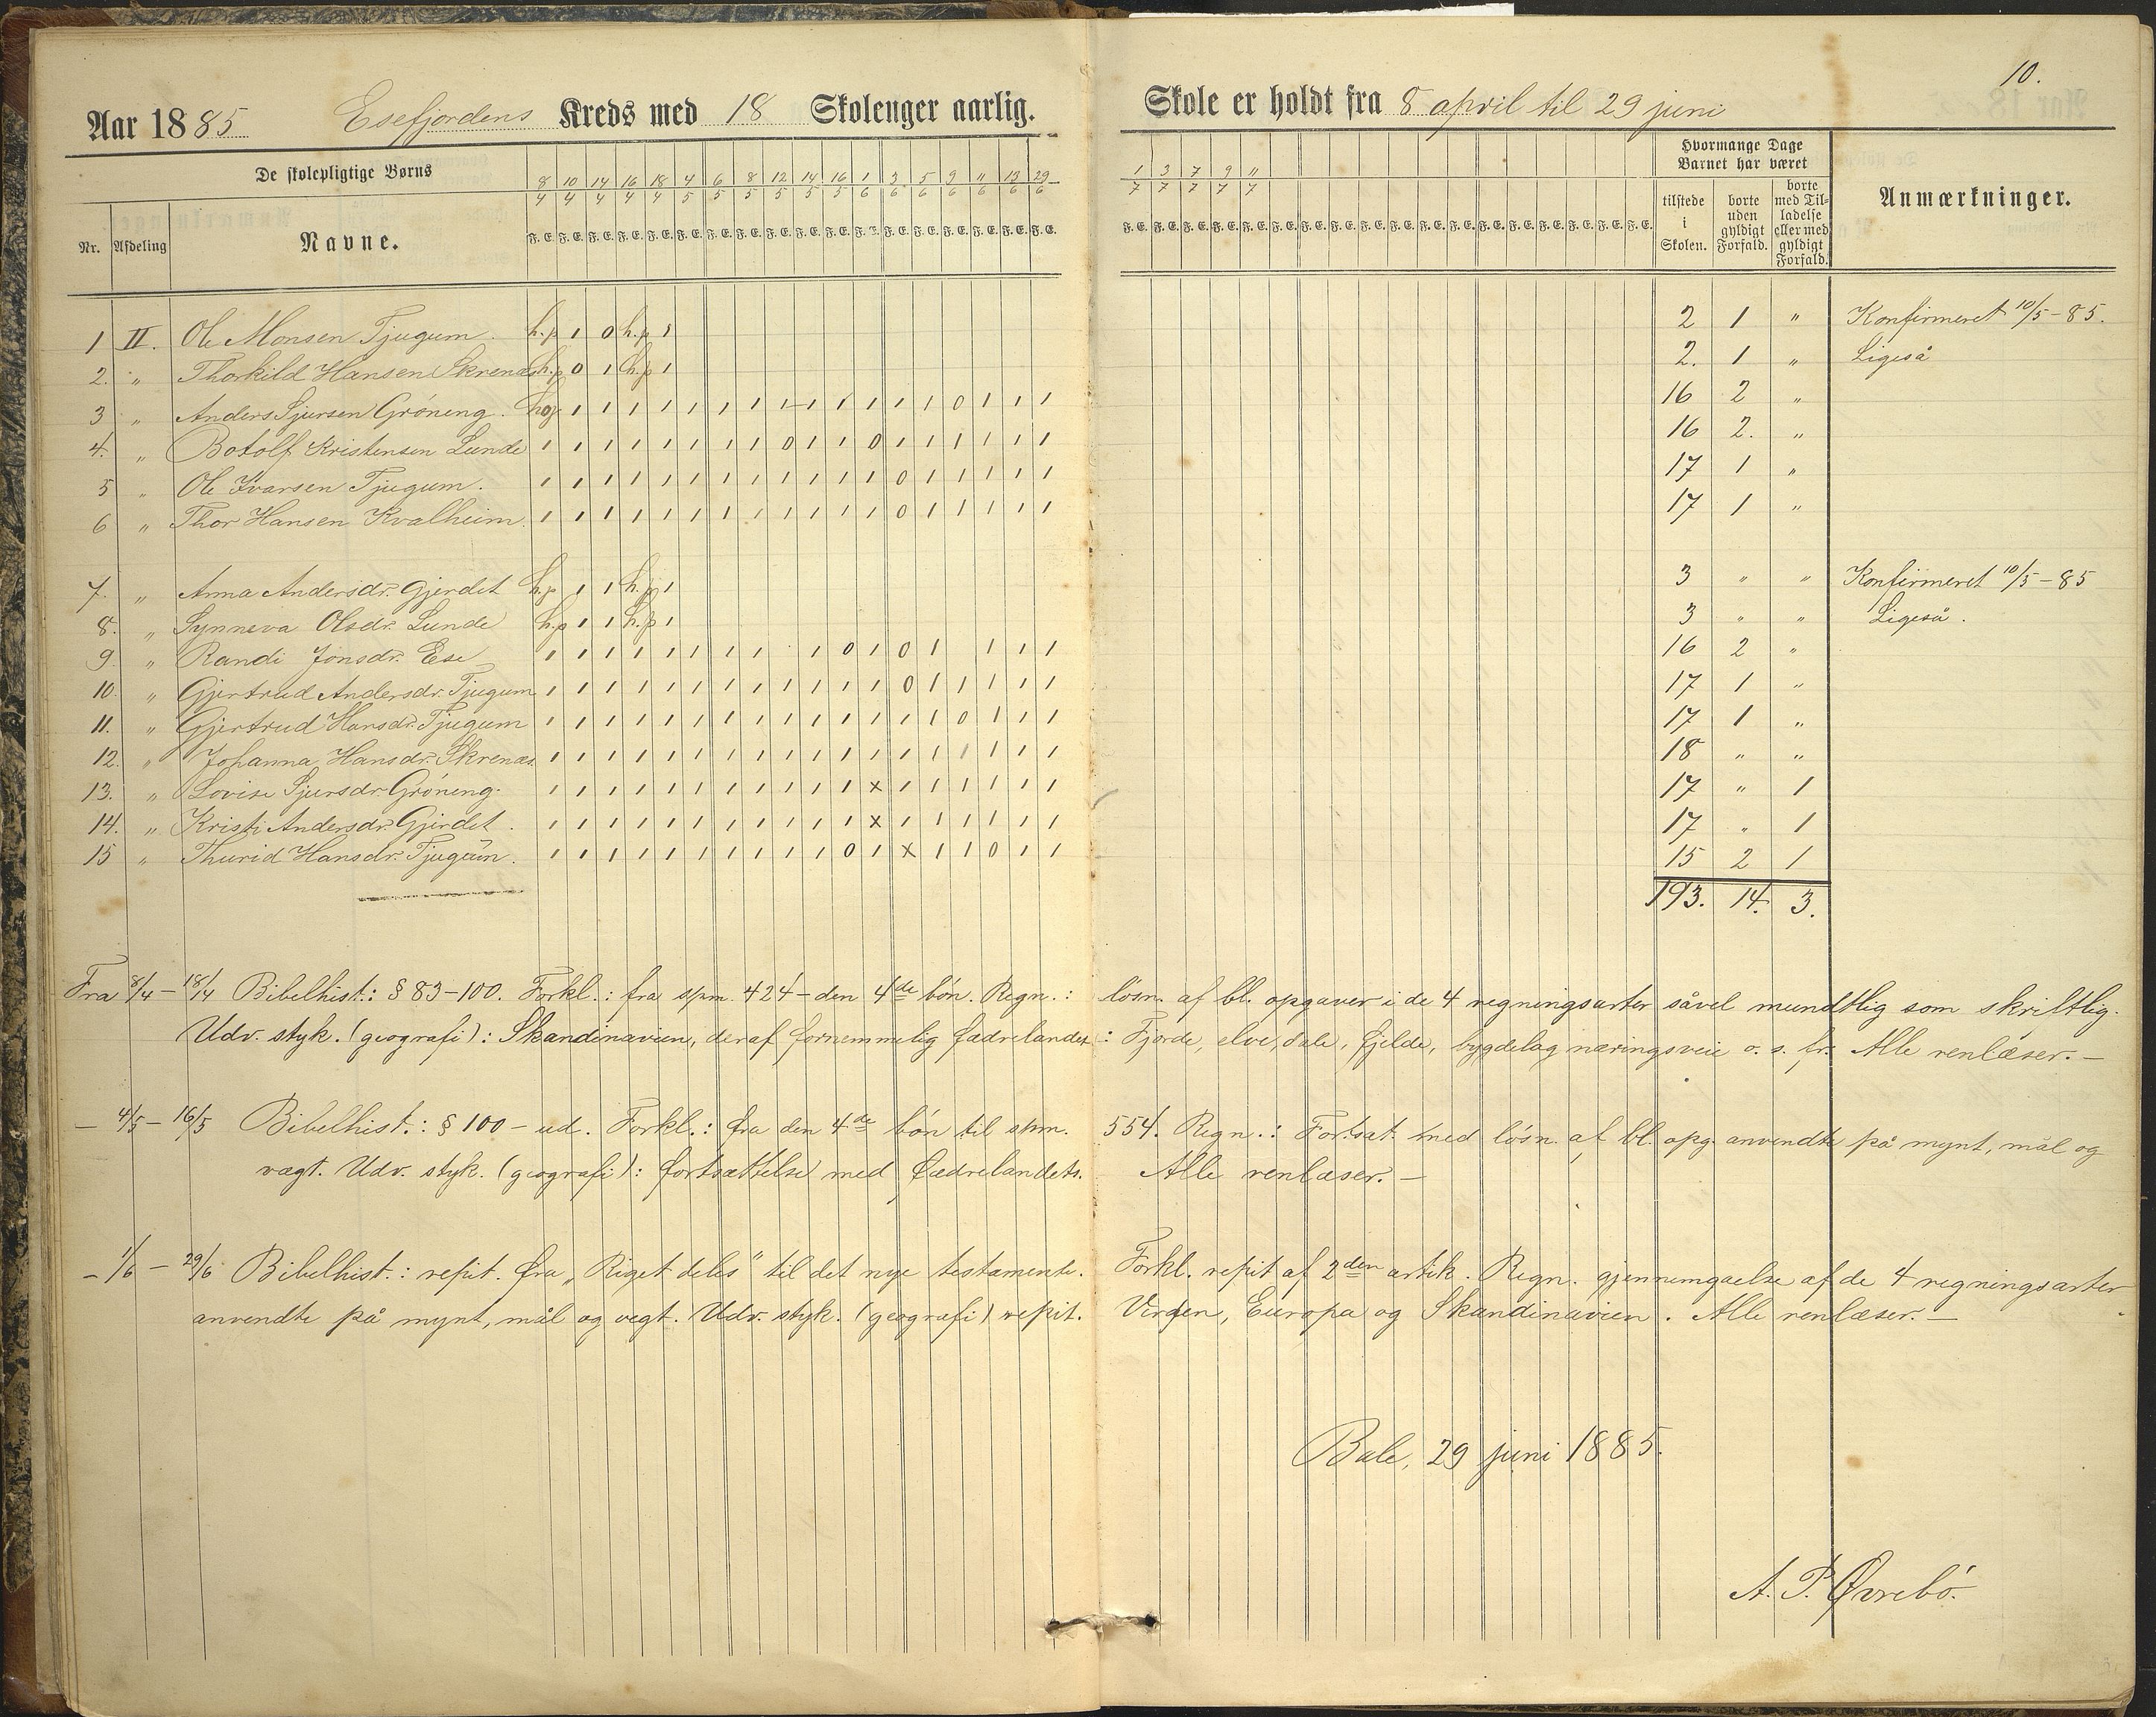 10.
Aar 1885 Esefjordens Kreds med 18 Skoleuger aarlig. Skole er holdt fra 8 april til 29 juni
De skolepligtige Børns
Nr. Afdeling Navne.
8/4 10/4 14/4 16/4 18/4 4/5 6/5 8/5 12/5 14/5 16/5 1/6 3/6 5/6 9/6 11/6 13/6 29/6 1/7 3/7 7/7 9/7 11/7
Hvormange Dage Barnet har været
tilstede i Skolen. borte uden gyldigt Forfald. borte med Tilladelse eller med gyldigt Forfald.
Anmærkninger.
1 II. Ole Monsen Tjugum. h.p 1 0 h.p 1 2 1 " Konfirmeret 10/5-85.
2. " Thorkild Hansen Skrenæs h.p 0 1 h.p 1 2. 1 " Ligeså
3 " Anders Sjursen Gróneng. 16 2 "
4. " Botolf Kristensen Lunde 16 2. "
5 " Ole Ivarsen Tjugum. 17 1 "
6 " Thor Hansen Kvalheim 17 1 "
7. " Anna Andersdr. Gjerdet h.p 1 1 h.p 1 3 " " Konfirmeret 10/5-85
8. " Synneva Olsdr. Lunde h.p 1 1 h.p 1 3 " " Ligeså.
9. " Randi Jonsdr. Ese 16 2 "
10. " Gjertrud Andersdr. Tjugum 17 1 "
11. " Gjertrud Hansdr. Tjugum 17 1 "
12. " Johanna Hansdr. Skrenæs 18 " "
13. " Lovise Sjursdr Gróneng. 17 " 1
14. " Kristi Andersdr. Gjerdet. 17 " 1
15 " Thurid Hansdr. Tjugum. 15 2 1
193. 14. 3.
Fra 8/4 - 18/4 Bibelhist.: § 83-100. Forkl.: fra spm. 424 - den 4de bón. Regn.: lósn. af bl. opgaver i de 4 regningsarter såvel mundtlig som skriftlig.
Udv. styk. (geografi): Skandinavien, deraf fornemmelig fædrelandet: Fjorde, elve, dale, fjelde, bygdelag næringsveie o. s. fr. Alle renlæser. -
- 4/5 - 16/5 Bibelhist.: § 100 - ud. Forkl.: fra den 4de bón til spm. 554. Regn.: Fortsat med lósn. af bl. opg. anvendte på mynt, mål og
vægt. Udv. styk. (geografi): fortsættelse med fædrelandets. Alle renlæser. -
- 1/6 - 29/6 Bibelhist.: repit. fra „Riget deles" til det nye testamente. Forkl. repit af 2den artik. Regn. gjennemgaelse af de 4 regningsarter
anvendte på mynt, mål og vegt. Udv. styk. (geografi) repit. Verden, Europa og Skandinavien. Alle renlæser. -
Bale, 29 juni 1885.
A. P. Øvrebó.